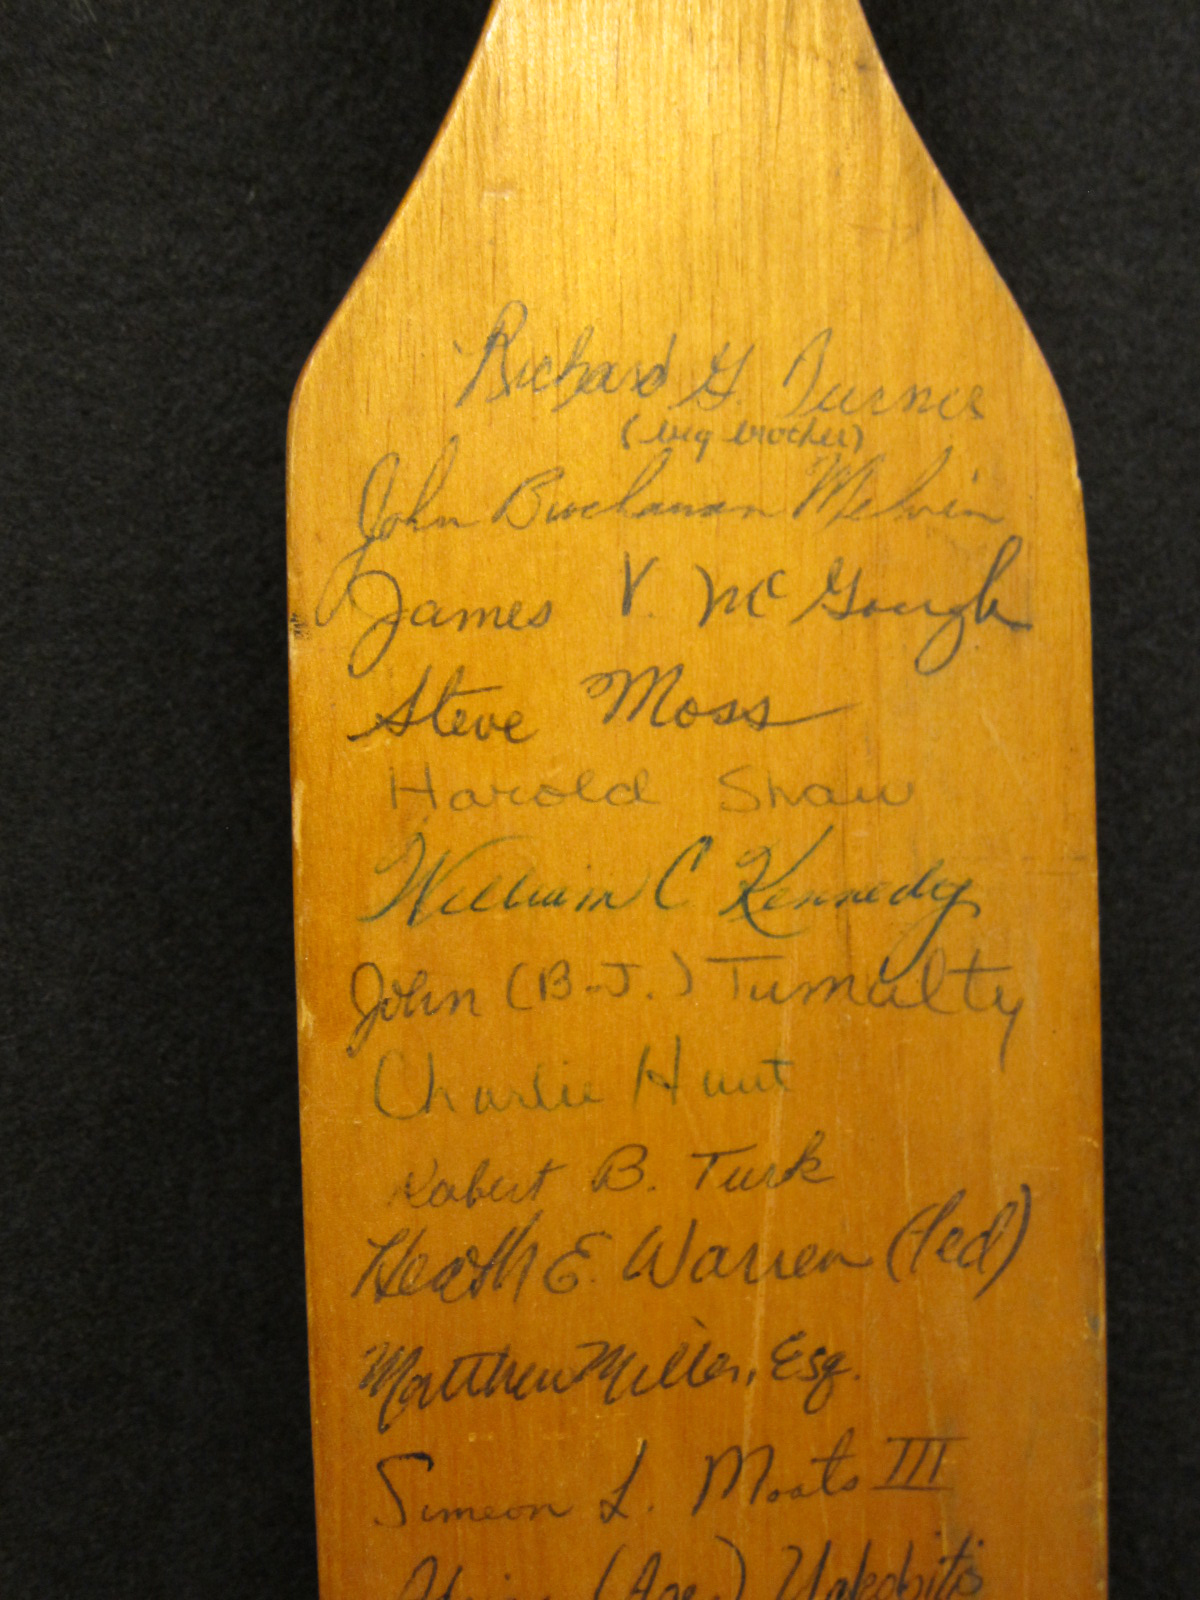 Richard G. Turner
(big brother)
John Buchanan Melvin
James V. McGough
Steve Moss
Harold Shaw
William C Kennedy
John (B.J.) Tumulty
Charlie Hunt
Robert B. Turk
Heath E. Warren (Ted)
Matthew Miller, Esq.
Simeon L. Moats III